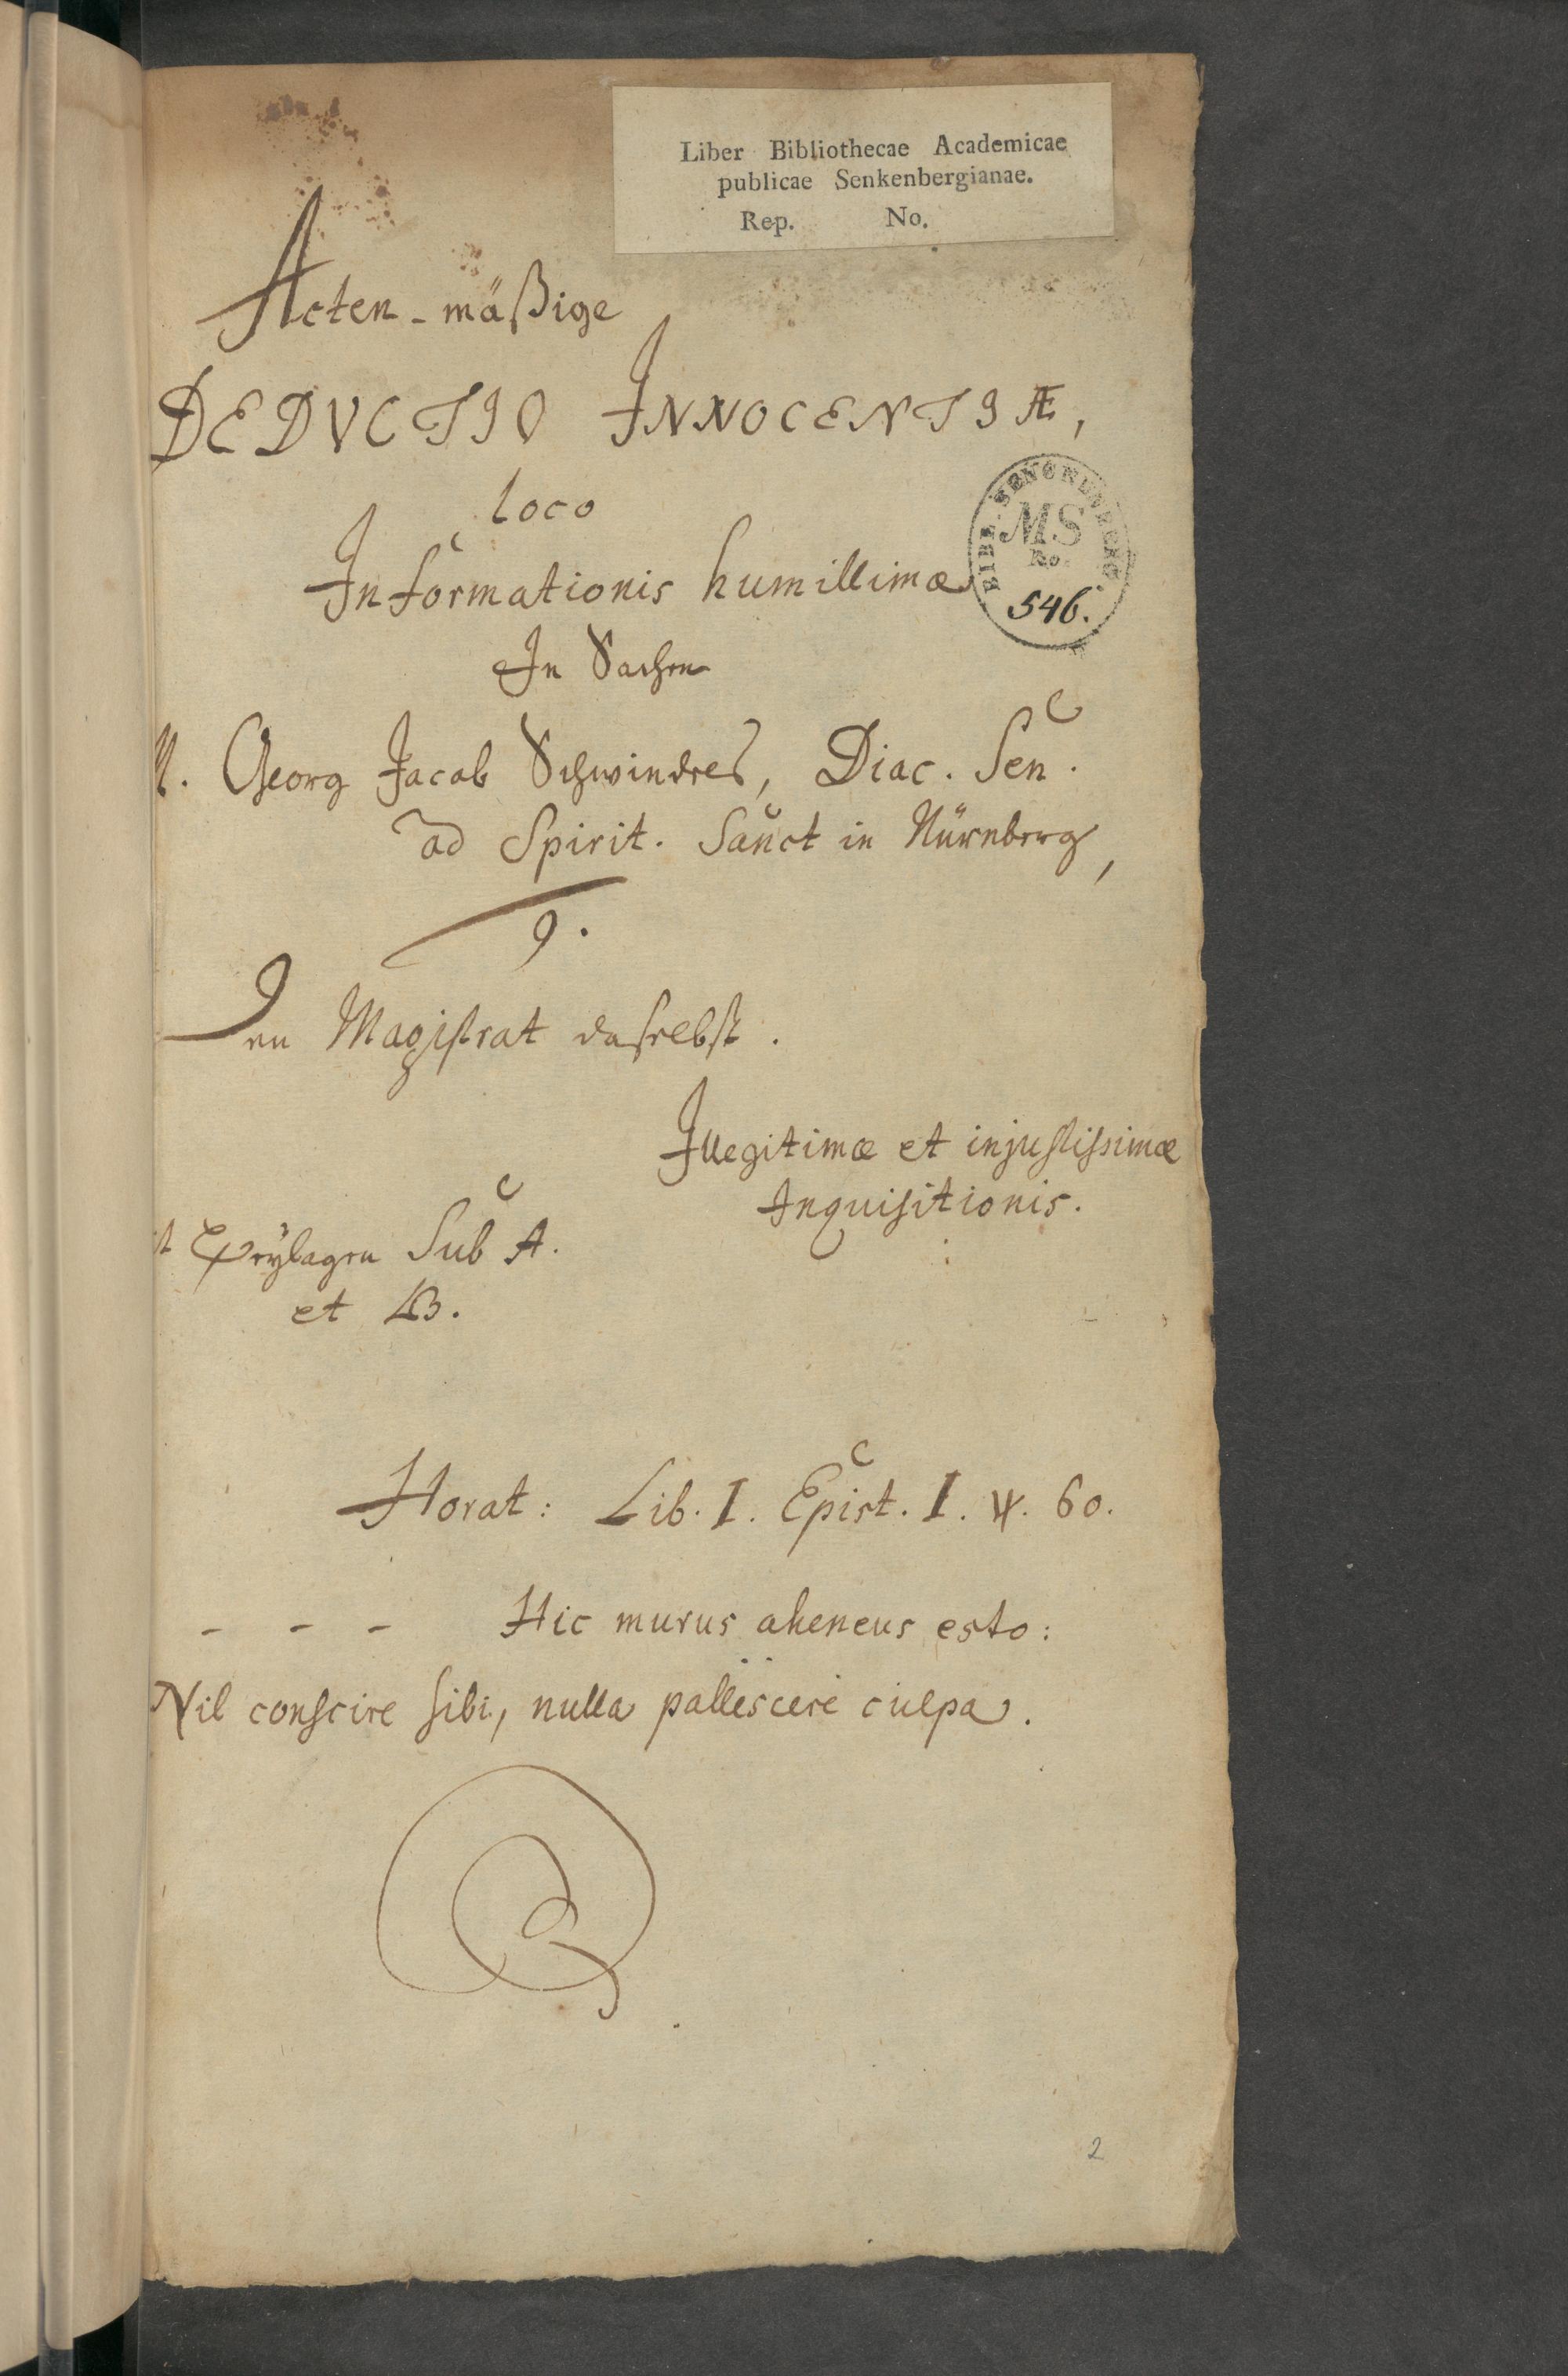 Liber Bibliothecae Academicae
publicae Senkenbergianae.
Rep. No.
Acten-mäßige
DEDVCTIO INNOCENTIÆ,
loco
Informationis humillimæ
In Sachen
M. Georg Jacob Schwindels, Diac. Sen.
ad Spirit. Sanct in Nürnberg,
Den Magistrat daselbst.
Illegitimæ et injustissimæ
Inquisitionis.
Beylagen Sub A.
et B.
Horat: Lib. I. Epist. I. V. 60.
- - - Hic murus aheneus esto:
Nil conscire sibi, nulla pallescere culpa.
BIBL. SENCKENBERG
MS
No.
546.
2